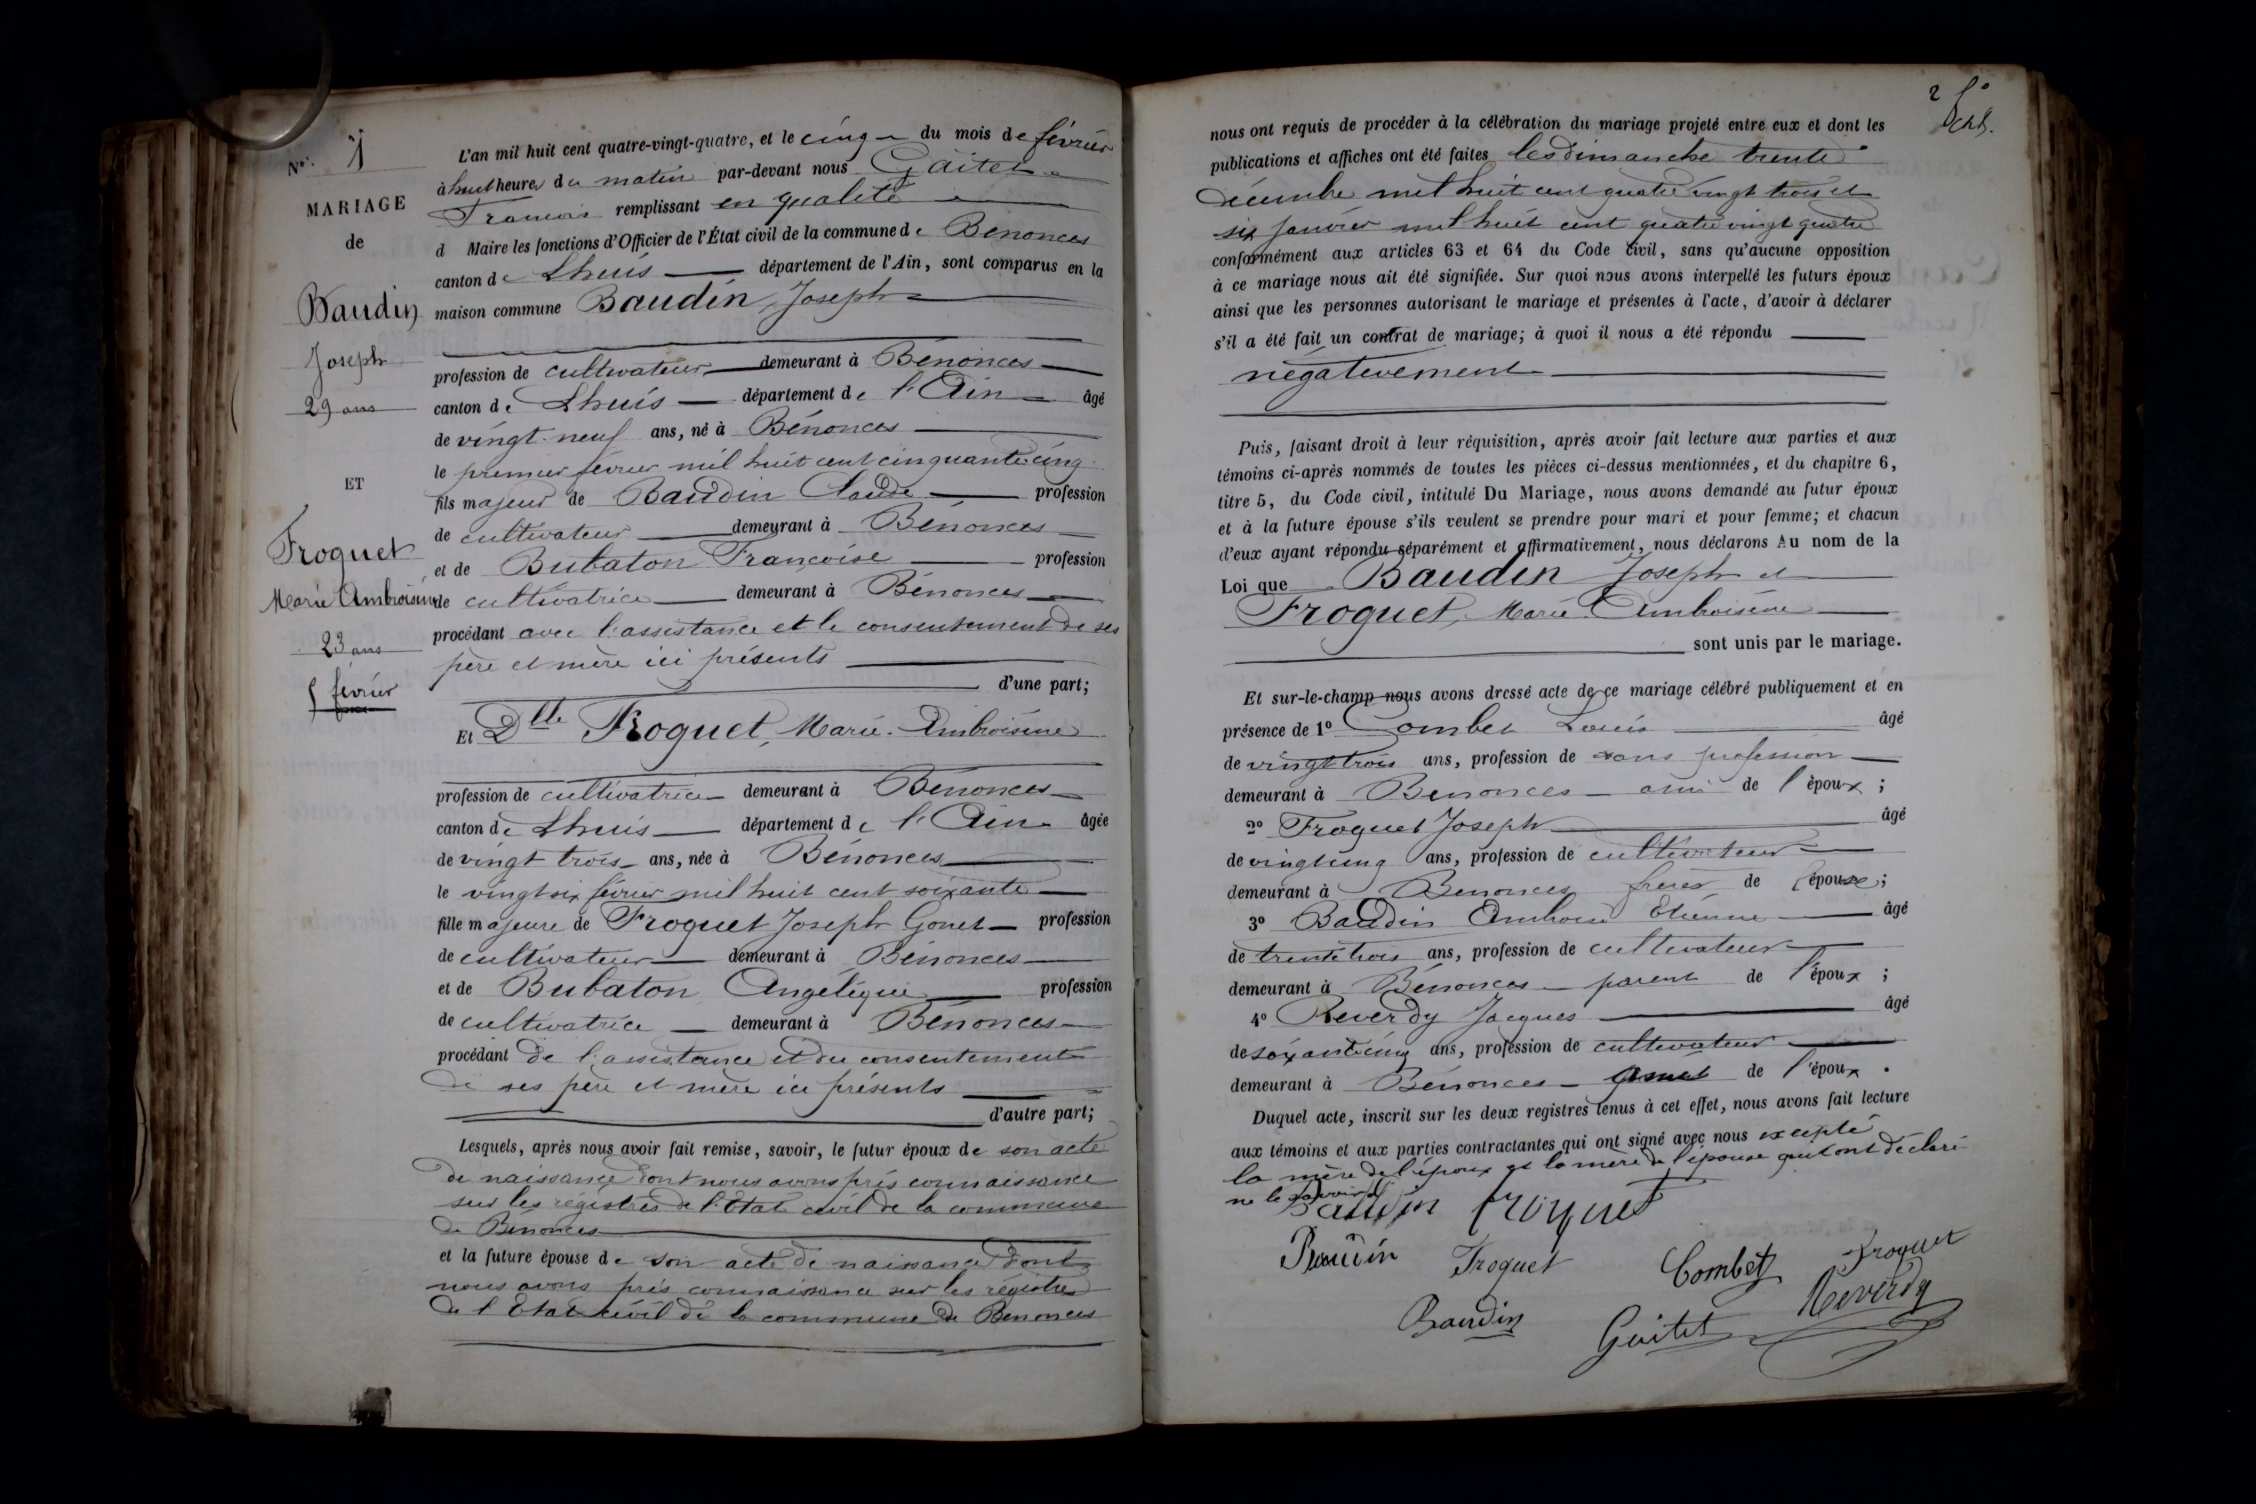 N°. 1
MARIAGE
de
Baudin
Joseph
29 ans
ET
Froquet
Marie Ambroisine
23 ans
5 février
L'an mil huit cent quatre-vingt-quatre, et le cinq du mois de février
à huit heures du matin par-devant nous Gaitet
François remplissant en qualité
d Maire les fonctions d'Officier de l'État civil de la commune de Bénonces
canton de Lhuis département de l'Ain, sont comparus en la
maison commune Baudin, Joseph
profession de cultivateur demeurant à Bénonces
canton de Lhuis département de l'Ain âgé
de vingt-neuf ans, né à Bénonces
le premier février mil huit cent cinquante cinq
fils majeur de Baudin Claude profession
de cultivateur demeurant à Bénonces
et de Bubaton Françoise profession
de cultivatrice demeurant à Bénonces
procédant avec l'assistance et le consentement de ses
père et mère ici présents
d'une part;
Et Dlle Froquet, Marie-Ambroisine
profession de cultivatrice demeurant à Bénonces
canton de Lhuis département de l'Ain âgée
de vingt trois ans, née à Bénonces
le vingt six février mil huit cent soixante
fille majeure de Froquet Joseph Gonet profession
de cultivateur demeurant à Bénonces
et de Bubaton Angélique profession
de cultivatrice demeurant à Bénonces
procédant de l'assistance et du consentement
de ses père et mère ici présents
d'autre part;
Lesquels, après nous avoir fait remise, savoir, le futur époux de son acte
de naissance dont nous avons pris connaissance
sur les régistres de l'Etat civil de la commune
de Bénonces
et la future épouse de son acte de naissance dont
nous avons pris connaissance sur les régistres
de l'Etat civil de la commune de Bénonces
2
nous ont requis de procéder à la célébration du mariage projeté entre eux et dont les
publications et affiches ont été faites les dimanche trente
décembre mil huit cent quatre vingt trois et
six janvier mil huit cent quatre vingt quatre
conformément aux articles 63 et 64 du Code civil, sans qu'aucune opposition
à ce mariage nous ait été signifiée. Sur quoi nous avons interpellé les futurs époux
ainsi que les personnes autorisant le mariage et présentes à l'acte, d'avoir à déclarer
s'il a été fait un contrat de mariage; à quoi il nous a été répondu
négativement
Puis, faisant droit à leur réquisition, après avoir fait lecture aux parties et aux
témoins ci-après nommés de toutes les pièces ci-dessus mentionnées, et du chapitre 6,
titre 5, du Code civil, intitulé Du Mariage, nous avons demandé au futur époux
et à la future épouse s'ils veulent se prendre pour mari et pour femme; et chacun
d'eux ayant répondu séparément et affirmativement, nous déclarons Au nom de la
Loi que Baudin Joseph et
Froquet, Marie-Ambroisine
sont unis par le mariage.
Et sur-le-champ nous avons dressé acte de ce mariage célébré publiquement et en
présence de 1° Combet Louis âgé
de vingt trois ans, profession de sans profession
demeurant à Bénonces ami de l'époux;
2° Froquet Joseph âgé
de vingt cinq ans, profession de cultivateur
demeurant à Bénonces frère de l'épouse;
3° Baudin Etienne âgé
de trente trois ans, profession de cultivateur
demeurant à Bénonces parent de l'époux;
4° Reverdy Jacques âgé
de soixante cinq ans, profession de cultivateur
demeurant à Bénonces de l'époux.
Duquel acte, inscrit sur les deux registres tenus à cet effet, nous avons fait lecture
aux témoins et aux parties contractantes qui ont signé avec nous excepté
la mère de l'époux et la mère de l'épouse qui ont déclaré
ne le savoir
Baudin Froquet
Baudin Froquet Combet Froquet
Baudin Gaitet Reverdy